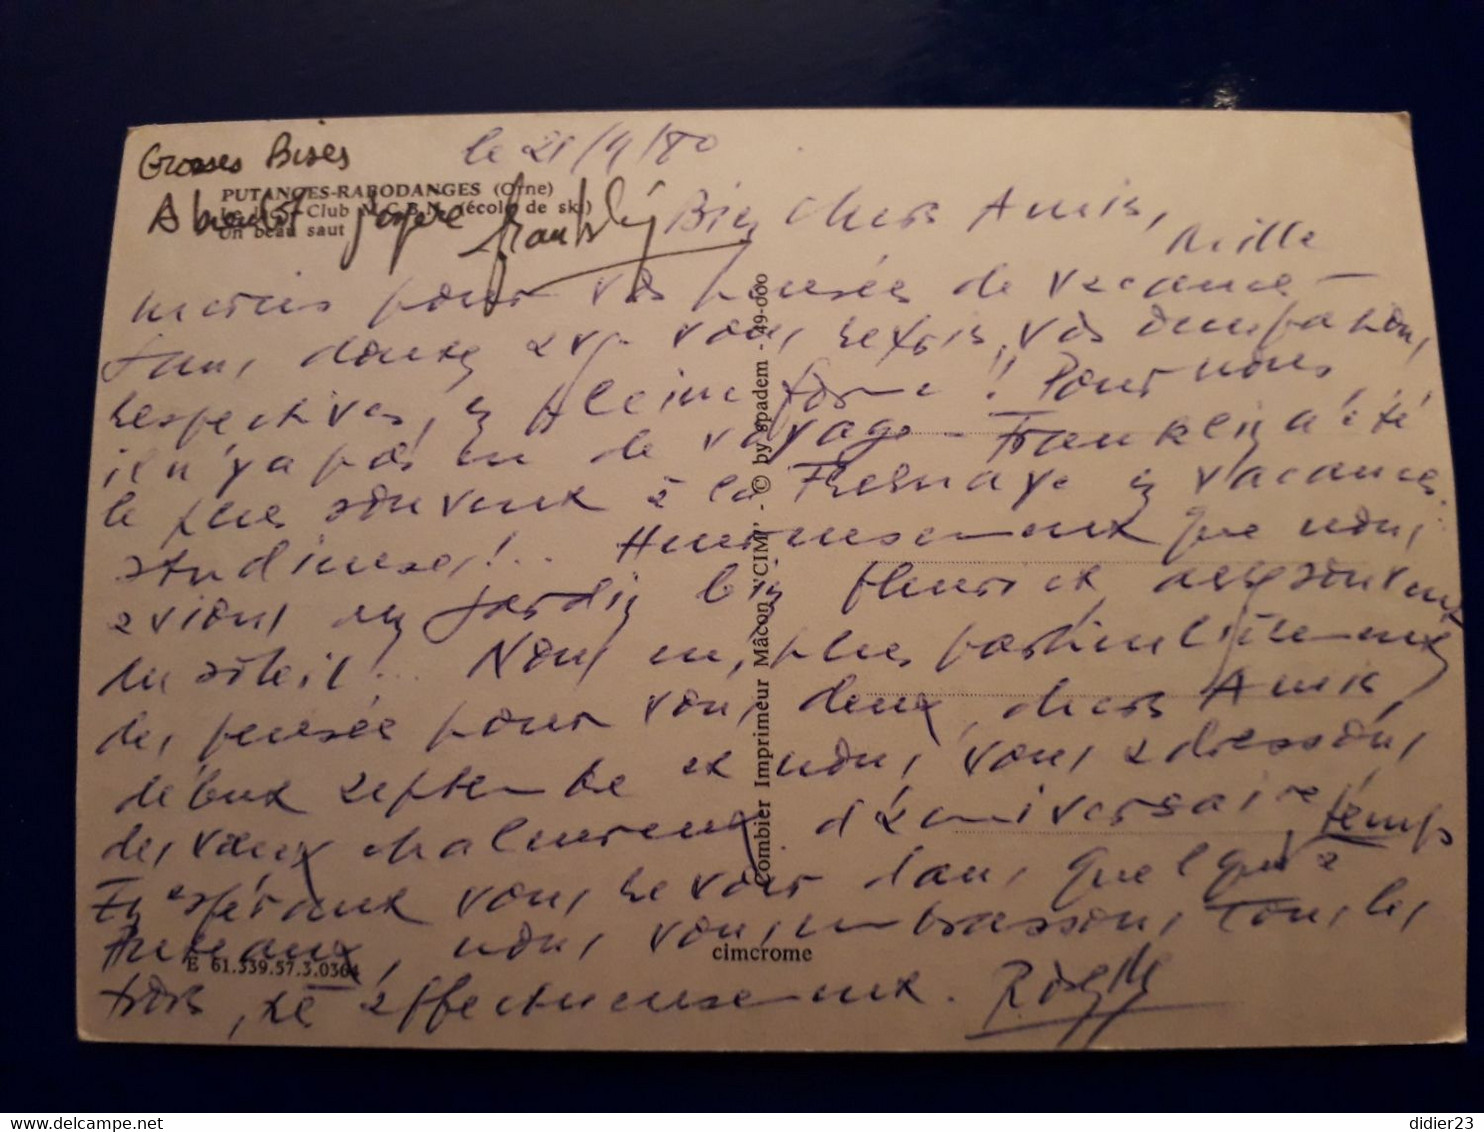 Grosses Bises le 21/9/80
PUTANGES-RABODANGES (Orne)
Club M.C.B.N. (école de ski)
A bientôt j'espère Franklin
Un beau saut
Bien chers Amis,
Mille
mercis pour vos pensées de vacances -
Sans doute avez vous repris vos occupations
respectives, en pleine forme ! Pour nous
il n'y a pas eu de voyage - Franklin a été
le plus souvent à la Fresnaye en vacances
studieuses !.. Heureusement que nous
avions un jardin bien fleuri et assez souvent
du soleil !.. Nous eu, plus particulièrement
des pensées pour vous deux, chers Amis,
début septembre et nous vous adressons
des vœux chaleureux d'anniversaire,
En espérant vous revoir dans quelque temps
à
Puteaux, nous vous embrassons, tous les
trois, très affectueusement.
Combier Imprimeur Mâcon "CIM" - © by spadem - 49-000
E 61.339.57.3.0364
cimcrome
didier23